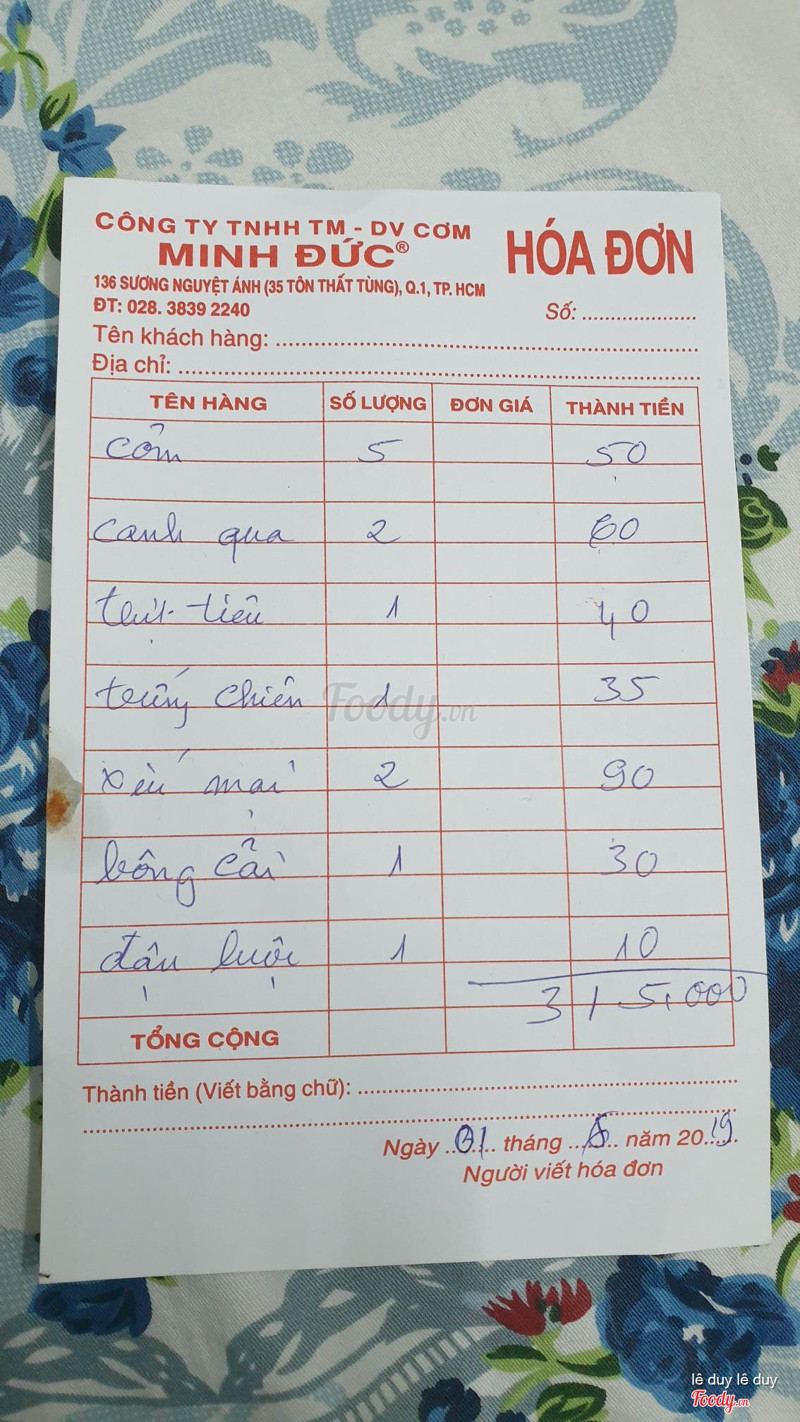 CÔNG TY TNHH TM - DV CƠM
MINH ĐỨC®
HÓA ĐƠN
136 SƯƠNG NGUYỆT ÁNH (35 TÔN THẤT TÙNG), Q.1, TP. HCM
ĐT: 028. 3839 2240
Số: ....................
Tên khách hàng: ................................................
Địa chỉ: ................................................
TÊN HÀNG SỐ LƯỢNG ĐƠN GIÁ THÀNH TIỀN
cơm 5 50
canh qua 2 60
thịt tiêu 1 40
trứng chiên 1 35
xíu mại 2 90
bông cải 1 30
đậu luộc 1 10
315.000
TỔNG CỘNG
Thành tiền (Viết bằng chữ): ................................................
Ngày 01 tháng 5 năm 2019
Người viết hóa đơn
Foody.vn
lê duy lê duy
Foody.vn